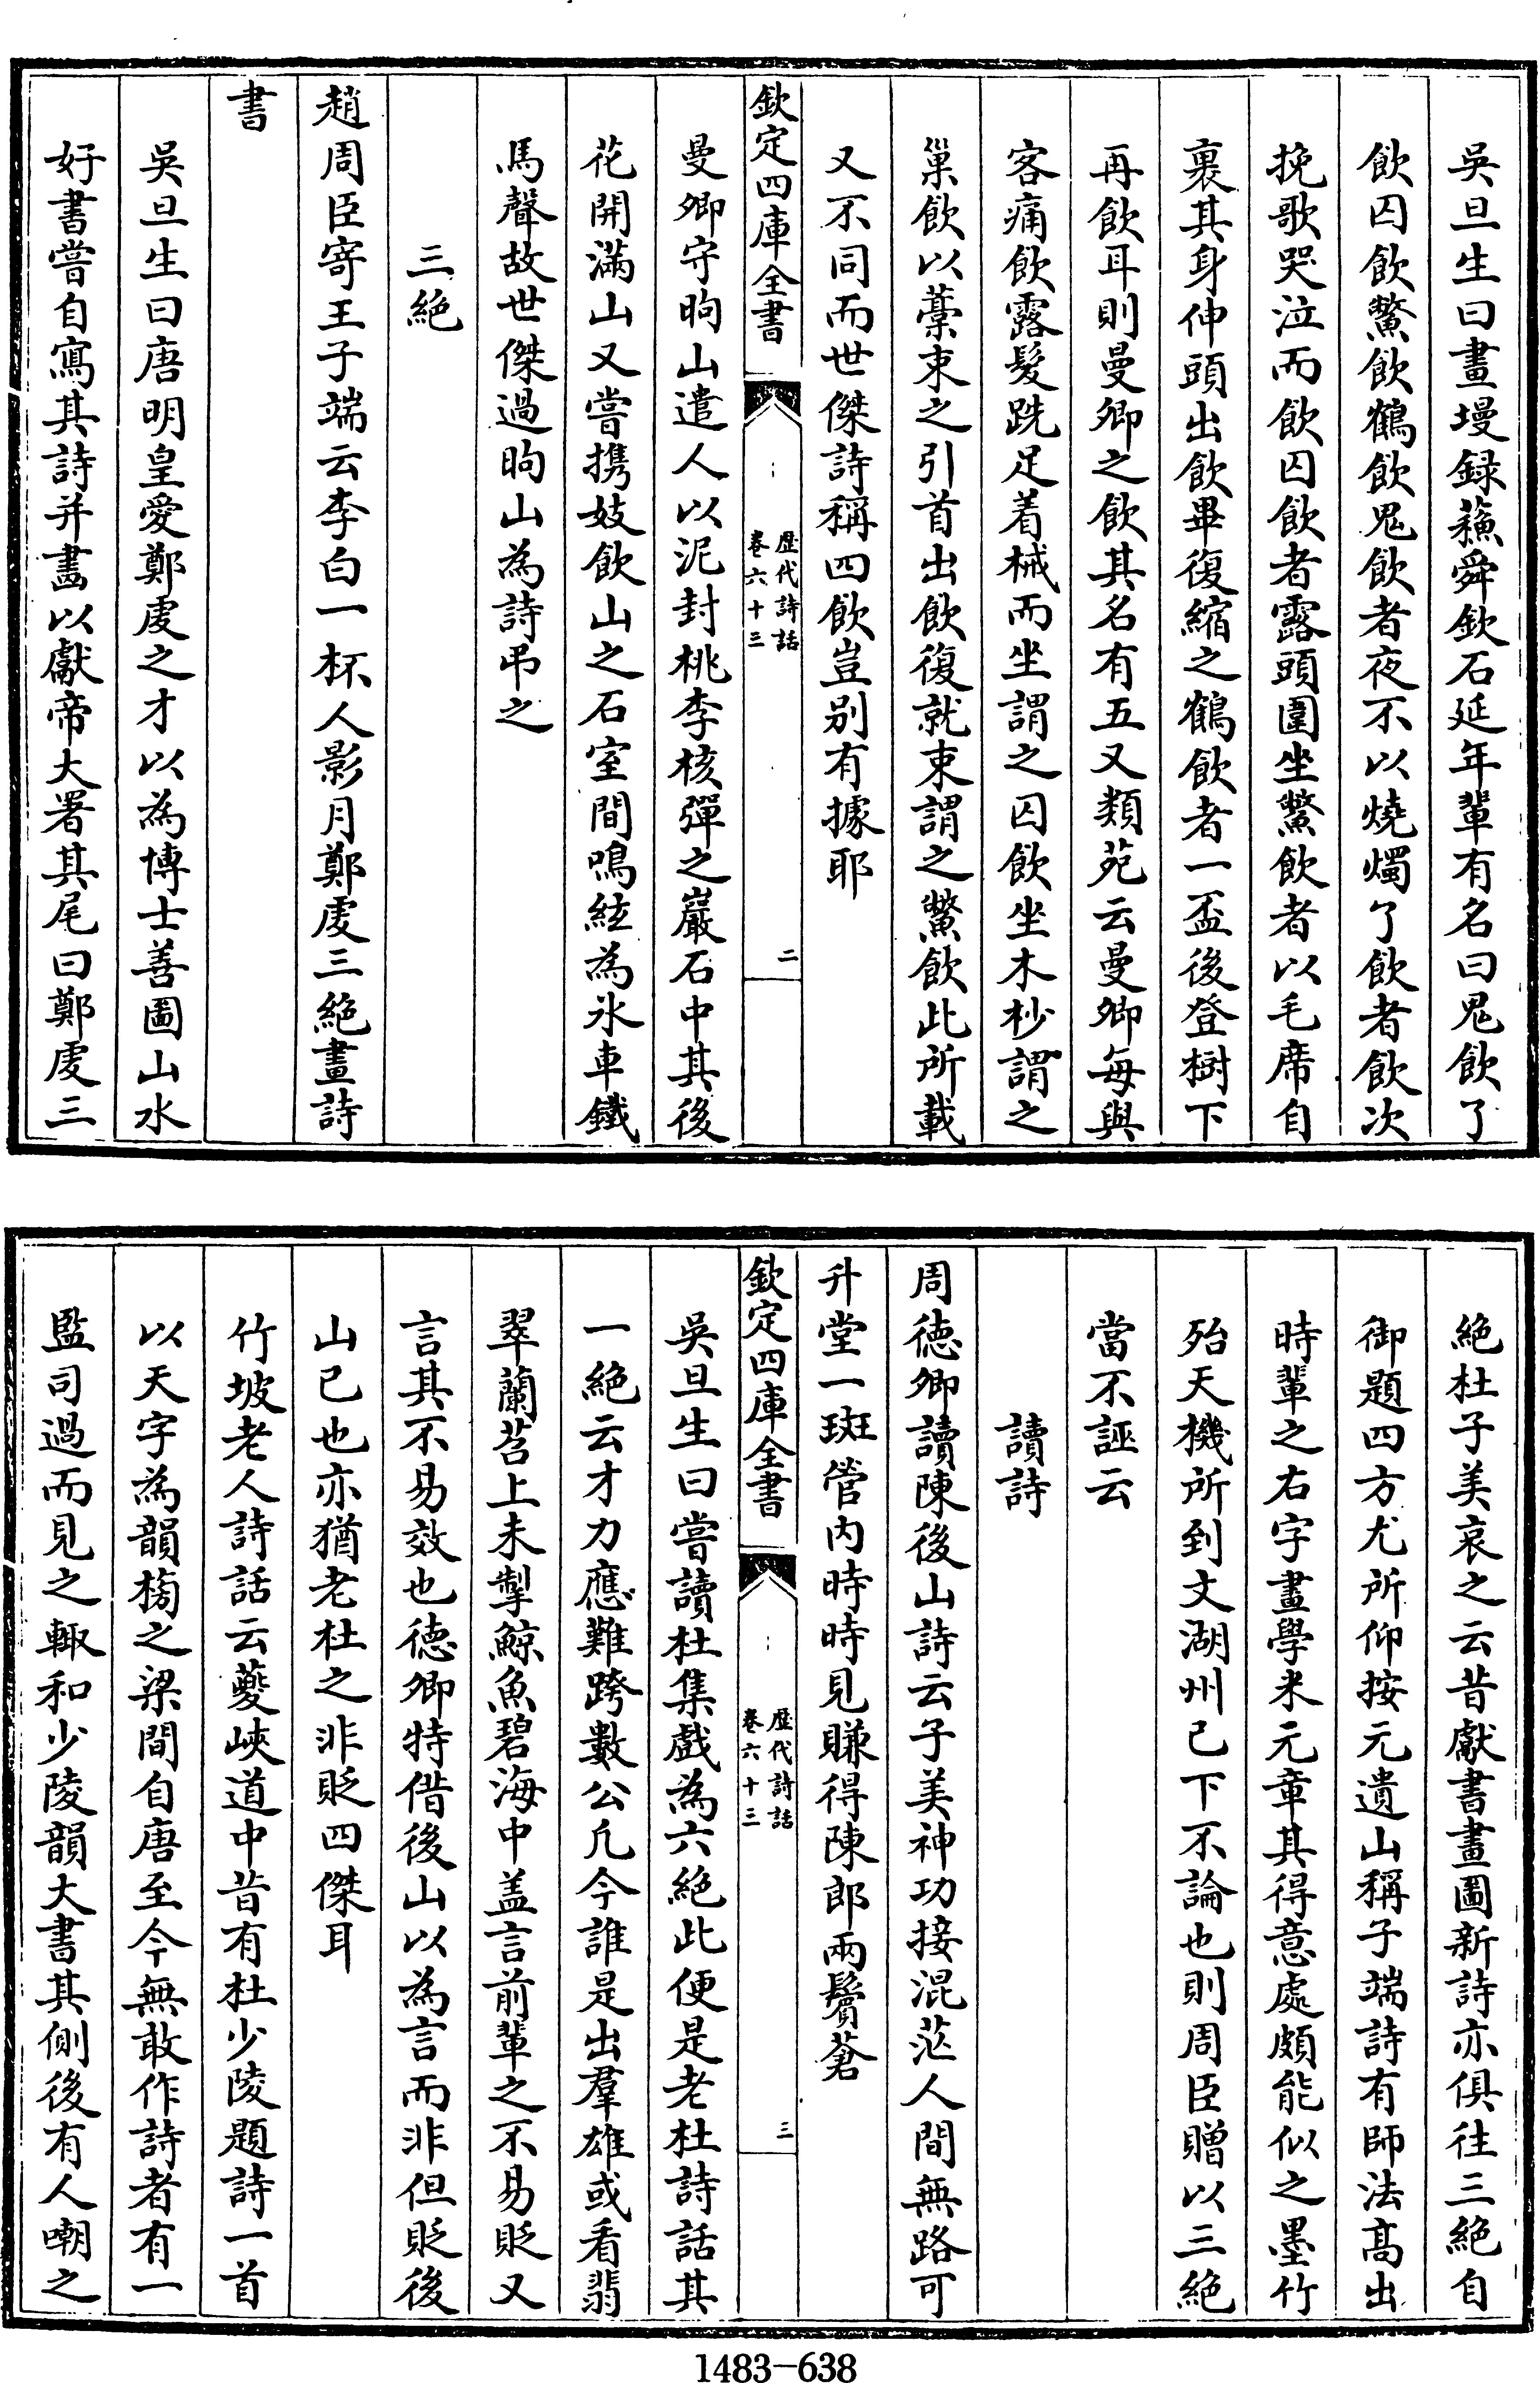 吳旦生曰畫墁録蘓舜欽石延年輩有名曰鬼飲了
飲囚飲鱉飲鶴飲鬼飲者夜不以燒燭了飲者飲次
挽歌哭泣而飲囚飲者露頭圍坐鱉飲者以毛席自
裹其身伸頭出飲畢復縮之鶴飲者一盃後登樹下
再飲耳則曼卿之飲其名有五又類苑云曼卿每與
客痛飲露髮跣足着械而坐謂之囚飲坐木杪謂之
巢飲以藁束之引首出飲復就束謂之鱉飲此所載
又不同而世傑詩稱四飲豈别有據耶
欽定四庫全書
歴代詩話
卷六十三
二
曼卿守朐山遣人以泥封桃李核彈之巖石中其後
花開滿山又嘗携妓飲山之石室間鳴絃為氷車鐵
馬聲故世傑過朐山為詩弔之
三絶
趙周臣寄王子端云李白一杯人影月鄭虔三絶畫詩
書
吳旦生曰唐明皇愛鄭虔之才以為博士善圖山水
好書嘗自寫其詩并畫以獻帝大署其尾曰鄭虔三
絶杜子美哀之云昔獻書畫圖新詩亦俱往三絶自
御題四方尤所仰按元遺山稱子端詩有師法髙出
時輩之右字畫學米元章其得意處頗能似之墨竹
殆天機所到文湖州已下不論也則周臣贈以三絶
當不誣云
讀詩
周徳卿讀陳後山詩云子美神功接混茫人間無路可
升堂一斑管内時時見賺得陳郎兩鬢蒼
欽定四庫全書
歴代詩話
卷六十三
三
吳旦生曰嘗讀杜集戲為六絶此便是老杜詩話其
一絶云才力應難跨數公凡今誰是出羣雄或看翡
翠蘭苕上未掣鯨魚碧海中盖言前輩之不易貶又
言其不易效也徳卿特借後山以為言而非但貶後
山已也亦猶老杜之非貶四傑耳
竹坡老人詩話云夔峽道中昔有杜少陵題詩一首
以天字為韻榜之梁間自唐至今無敢作詩者有一
監司過而見之輙和少陵韻大書其側後有人嘲之
1483-638